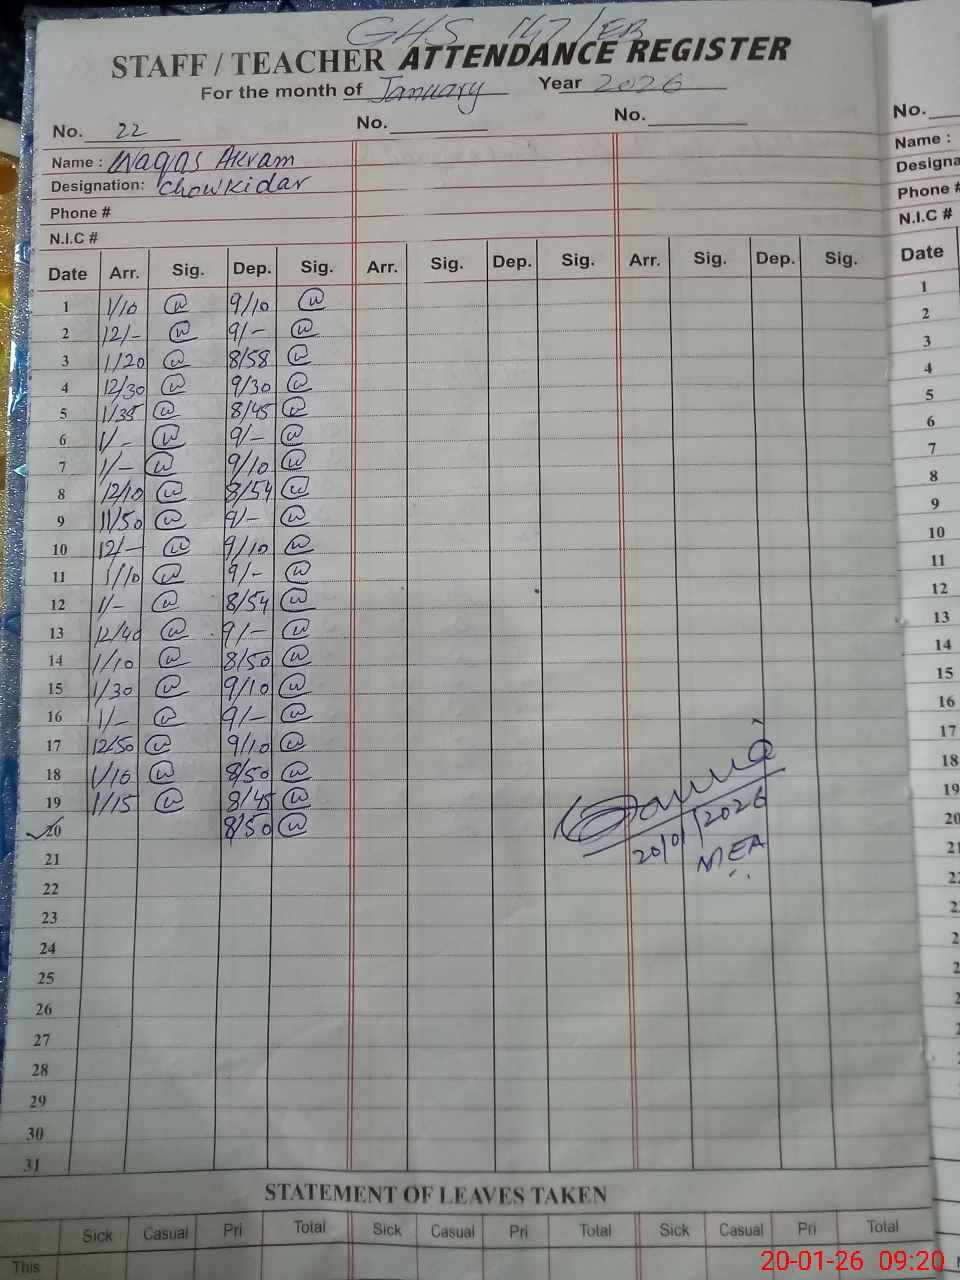 GHS 147/EB
STAFF / TEACHER ATTENDANCE REGISTER
For the month of January Year 2026
No. 22 No. No. No.
Name : Waqas Akram Name :
Designation: Chowkidar Designa
Phone # Phone #
N.I.C # N.I.C #
Date Arr. Sig. Dep. Sig. Arr. Sig. Dep. Sig. Arr. Sig. Dep. Sig. Date
1 1/10 w 9/10 w 1
2 12/- w 9/- w 2
3 1/20 w 8/58 w 3
4 12/30 w 9/30 w 4
5 1/35 w 8/45 w 5
6 1/- w 9/- w 6
7 1/- w 9/10 w 7
8 12/10 w 8/54 w 8
9 11/50 w 9/- w 9
10 12/- w 9/10 w 10
11 1/10 w 9/- w 11
12 1/- w 8/54 w 12
13 12/40 w 9/- w 13
14 1/10 w 8/50 w 14
15 1/30 w 9/10 w 15
16 1/- w 9/- w 16
17 12/50 w 9/10 w 17
18 1/10 w 8/50 w 18
19 1/15 w 8/45 w 19
20 8/50 w 20/01/2026 20
21 MEA 21
22
23
24
25
26
27
28
29
30
31
STATEMENT OF LEAVES TAKEN
Sick Casual Pri Total Sick Casual Pri Total Sick Casual Pri Total
This
20-01-26 09:20